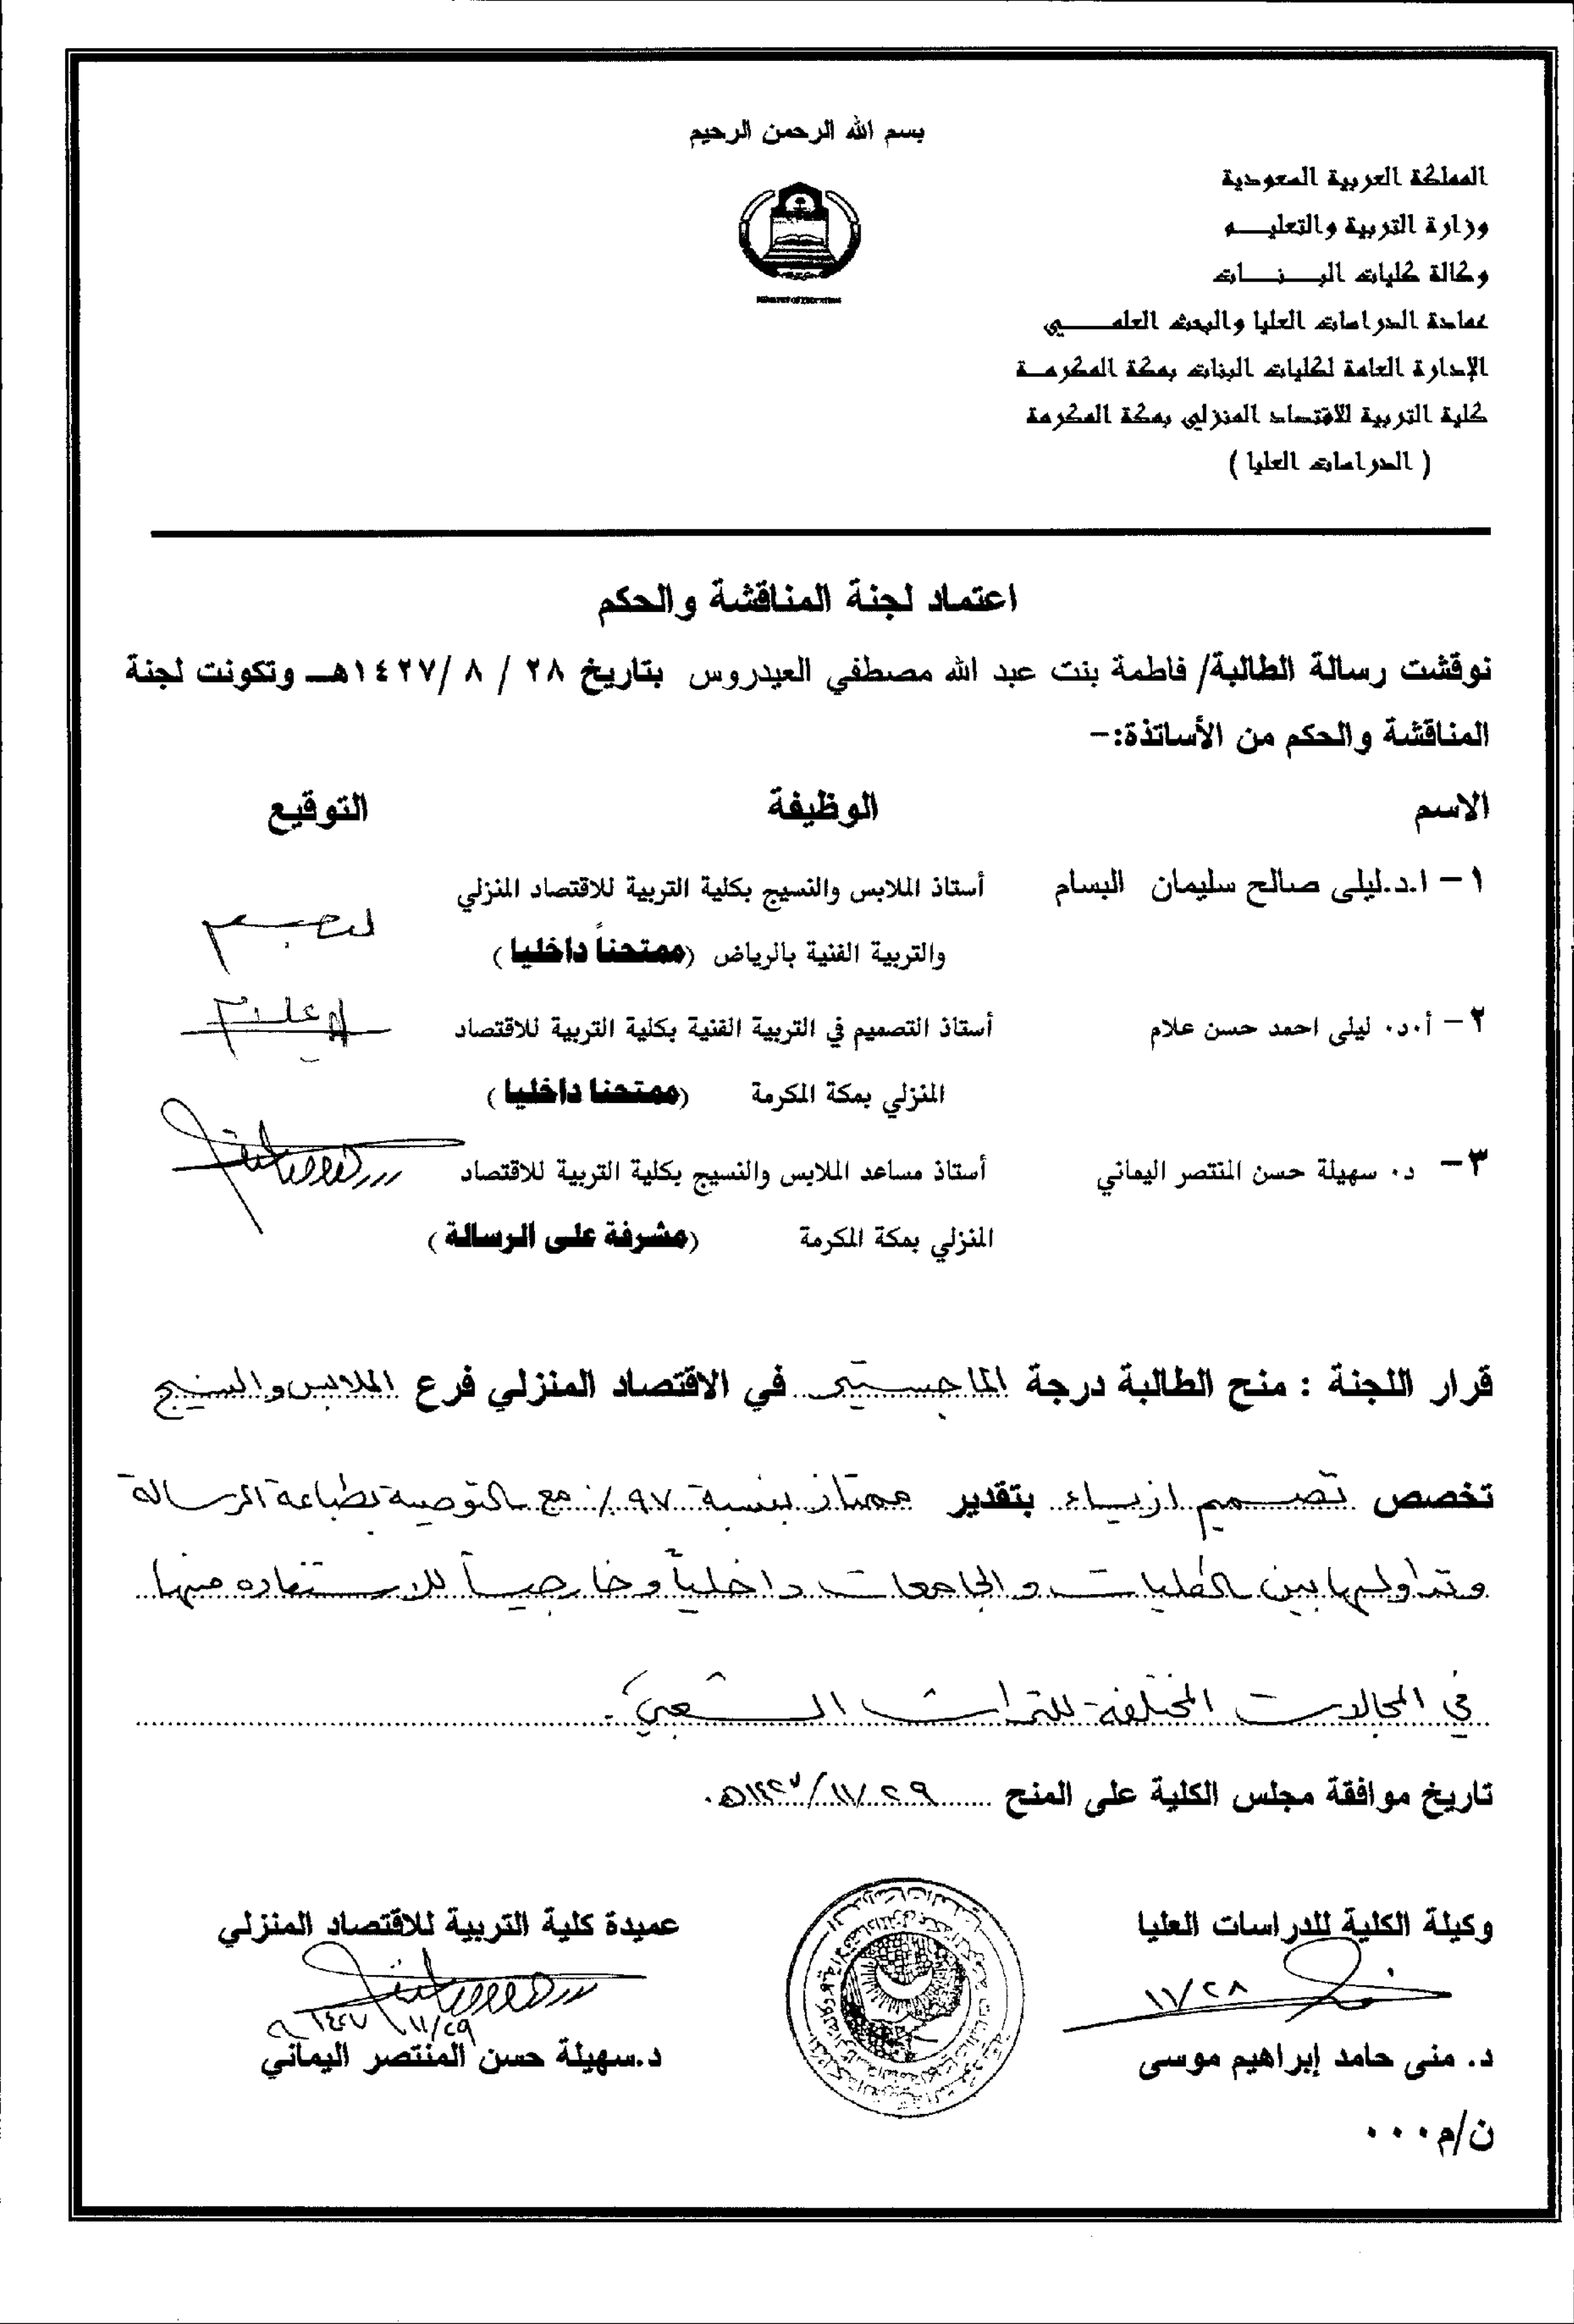 بسم الله الرحمن الرحيم
المملكة العربية السعودية
وزارة التربية والتعليــم
وكالة كليات البــنــات
عمادة الدراسات العليا والبحث العلمــي
الإدارة العامة لكليات البنات بمكة المكرمــة
كلية التربية للاقتصاد المنزلي بمكة المكرمة
( الدراسات العليا )
اعتماد لجنة المناقشة والحكم
نوقشت رسالة الطالبة/ فاطمة بنت عبد الله مصطفي العيدروس بتاريخ ٢٨ / ٨ /١٤٢٧هـ وتكونت لجنة
المناقشة والحكم من الأساتذة:-
الاسم الوظيفة التوقيع
١- ا.د.ليلى صالح سليمان البسام أستاذ الملابس والنسيج بكلية التربية للاقتصاد المنزلي
والتربية الفنية بالرياض (ممتحناً داخليا)
٢- أ.د. ليلى احمد حسن علام أستاذ التصميم في التربية الفنية بكلية التربية للاقتصاد
المنزلي بمكة المكرمة (ممتحنا داخليا)
٣- د. سهيلة حسن المنتصر اليماني أستاذ مساعد الملابس والنسيج بكلية التربية للاقتصاد
المنزلي بمكة المكرمة (مشرفة على الرسالة)
قرار اللجنة : منح الطالبة درجة الماجستير في الاقتصاد المنزلي فرع الملابس والنسيج
تخصص تصميم ازياء بتقدير ممتاز بنسبة ٩٧٪ مع التوصية بطباعة الرسالة
وتداولها بين الكليات والجامعات داخلياً وخارجياً للاستفاده منها
في المجالات المختلفة للتراث الشعبي.
تاريخ موافقة مجلس الكلية على المنح ٢٩/١١/١٤٢٧هـ.
وكيلة الكلية للدراسات العليا عميدة كلية التربية للاقتصاد المنزلي
١١/٢٨ ١٤٢٧/١١/٢٩
د. منى حامد إبراهيم موسى د.سهيلة حسن المنتصر اليماني
ن/م٠٠٠